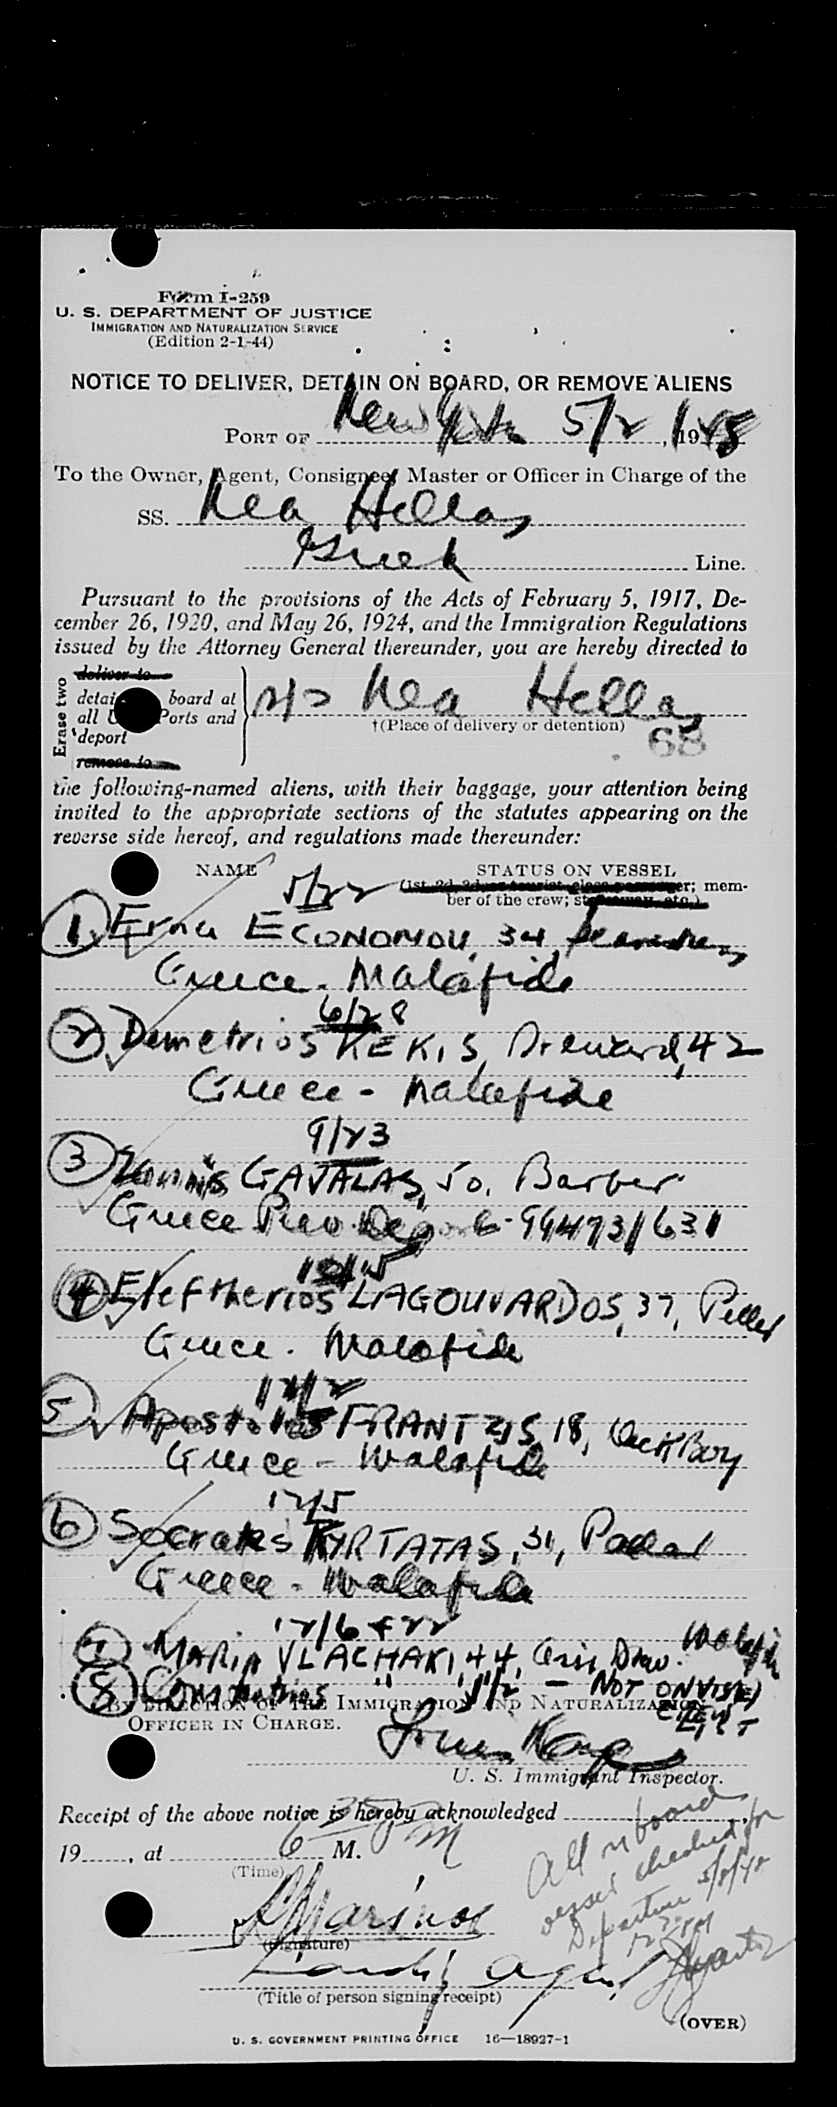 Form I-259
U. S. DEPARTMENT OF JUSTICE
IMMIGRATION AND NATURALIZATION SERVICE
(Edition 2-1-44)
NOTICE TO DELIVER, DETAIN ON BOARD, OR REMOVE ALIENS
PORT OF New York 5/2, 1948
To the Owner, Agent, Consignee, Master or Officer in Charge of the
SS. Nea Hellas
Greek Line.
Pursuant to the provisions of the Acts of February 5, 1917, De-
cember 26, 1920, and May 26, 1924, and the Immigration Regulations
issued by the Attorney General thereunder, you are hereby directed to
Erase two
deliver to
detain board at
all Ports and
deport
remove to
Nea Hellas
†(Place of delivery or detention)
68
the following-named aliens, with their baggage, your attention being
invited to the appropriate sections of the statutes appearing on the
reverse side hereof, and regulations made thereunder:
NAME STATUS ON VESSEL
5/22 mem-
ber of the crew;
1. Erna ECONOMOU, 34,
Greece - Malafide
6/28
2 Demetrios KEKIS, Steward, 42
Greece - Malafide
9/23
3 GAVALAS, 50, Barber
Greece Prev. 99473/631
4 Eleftherios LAGOUVARDOS, 37,
Greece - Malafide
12/2
5 Apostolos FRANTZIS 18, Deck Boy
Greece - Malafide
12/5
6 Socrates KYRTATAS, 31,
Greece - Malafide
12/6 + 22
7 MARIA VLACHAKI, 44, Malafide
8 Constantinos " 1 1/2 - NOT ON VISAED CREW LIST
BY DIRECTION OF THE IMMIGRATION AND NATURALIZATION
OFFICER IN CHARGE.
U. S. Immigrant Inspector.
Receipt of the above notice is hereby acknowledged
19, at 6 30 PM M.
(Time)
All on board
vessel checked for
Departure 5/8/48
Marinos
(Signature)
Agent
(Title of person signing receipt)
(OVER)
U. S. GOVERNMENT PRINTING OFFICE 16—18927-1